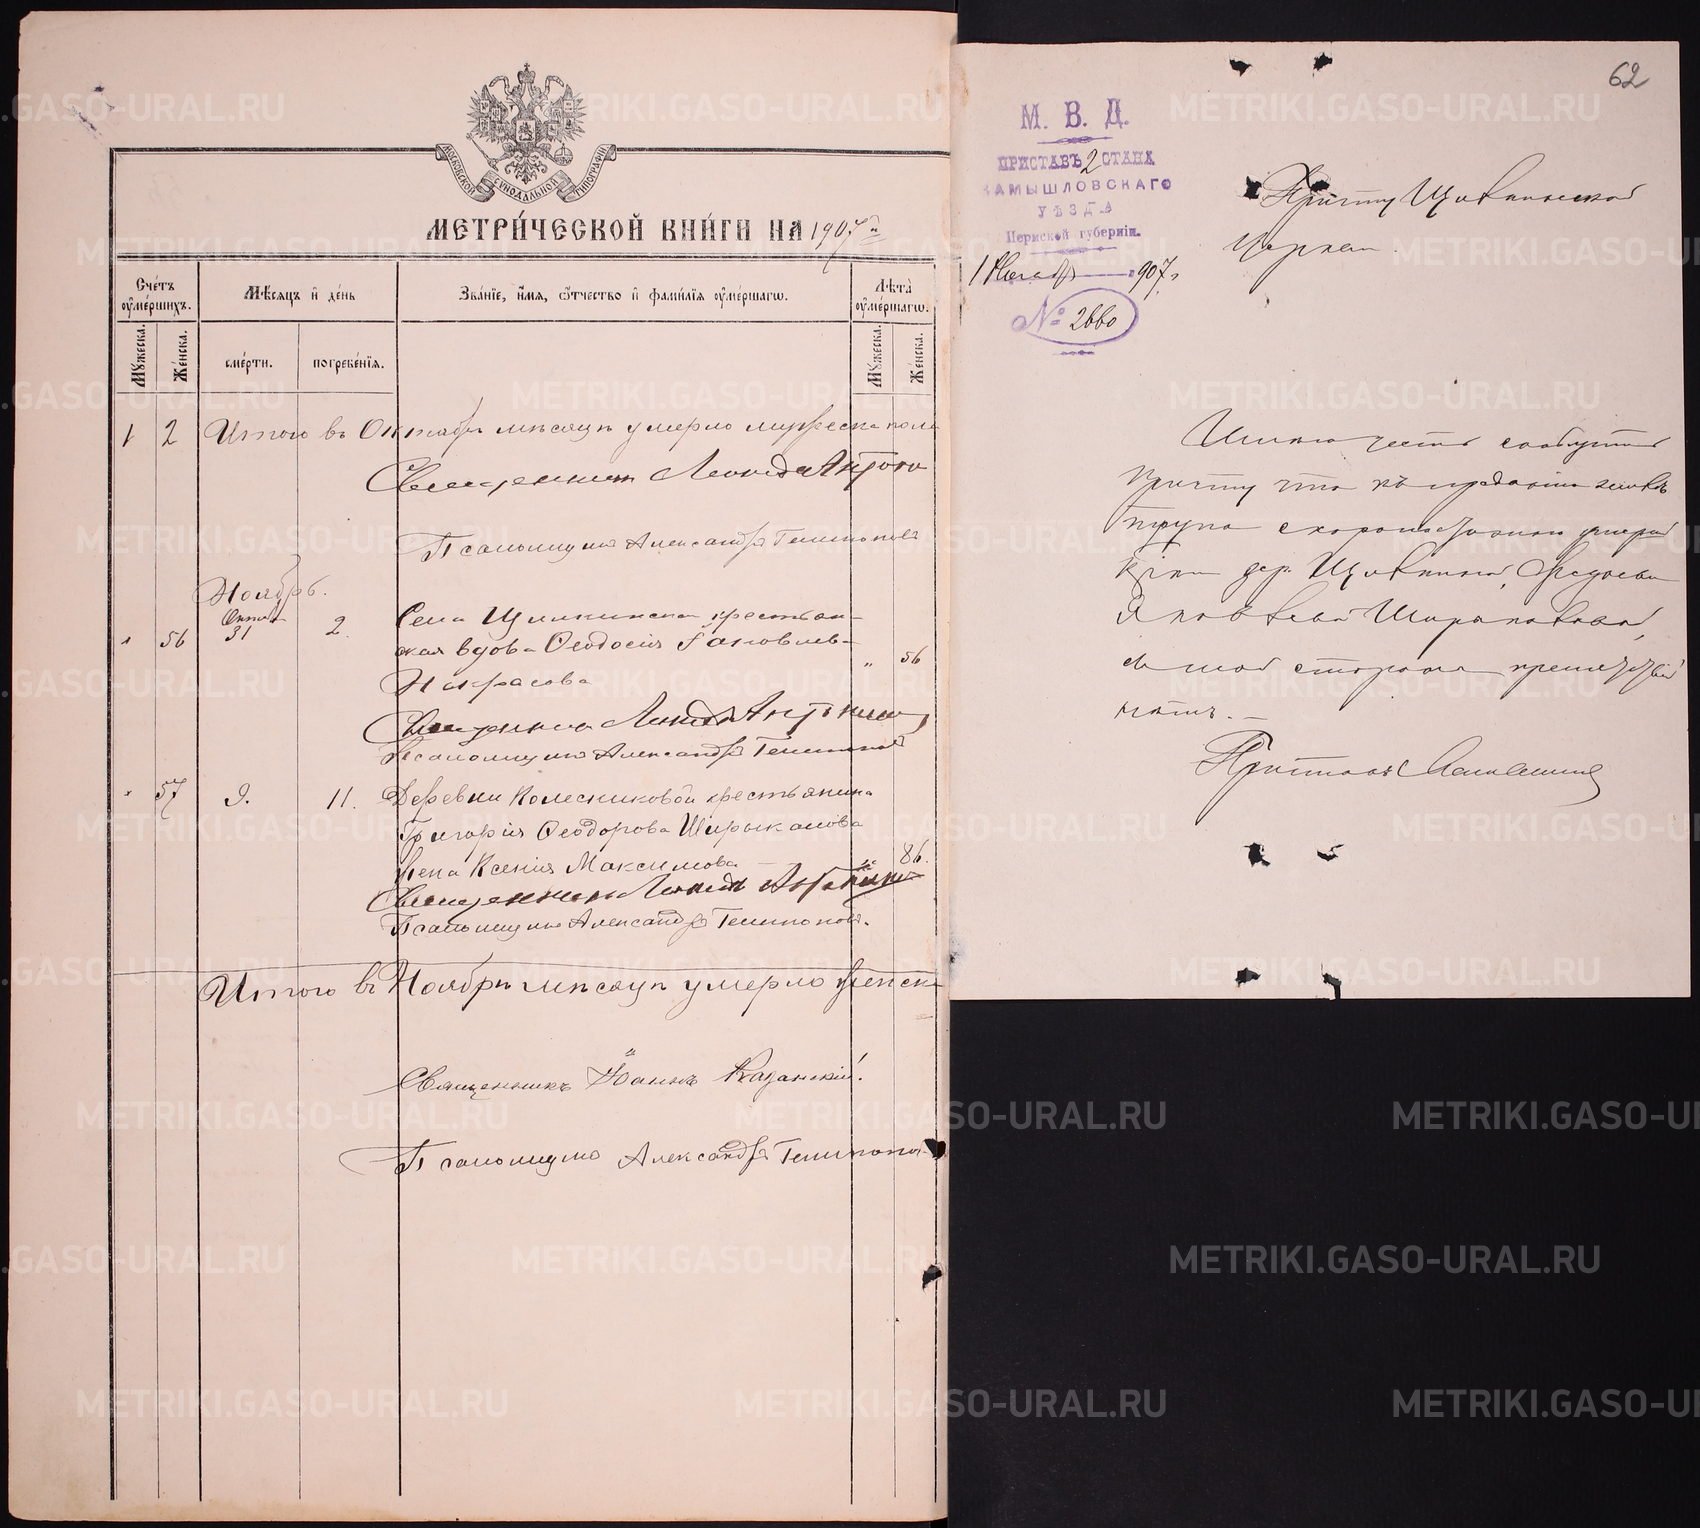 МОСКОВСКОЙ СѴНОДАЛЬНОЙ ТИПОГРАФІИ
МЕТРИ́ЧЕСКОЙ КНИ́ГИ НА 1907 й
Сче́тъ оу҆ме́ршихъ.
Мѣ́сяцъ и҆ де́нь
Зва́нїе, и҆́мя, ѻ҆́тчество и҆ фами́лїя оу҆ме́ршагѡ.
Лѣ́та оу҆ме́ршагѡ.
Мꙋ́жеска.
Же́нска.
сме́рти.
погребе́нїя.
Мꙋ́жеска.
Же́нска.
1 2 Итого въ Октябрѣ мѣсяцѣ умерло мужеска пола
Священникъ Леонидъ
Псаломщикъ Александръ
Ноябрь.
" 56 Октяб. 31 2. Села крестьян-
ская вдова Ѳеодосія Яковлев-
Некрасова " 56
Священникъ Леонидъ
Псаломщикъ Александръ
" 57 9. 11. Деревни Колесниковой крестьянина
Григорія Ѳеодорова Ширыкалова
жена Ксенія Максимова " 86.
Священникъ Леонидъ
Псаломщикъ Александръ
Итого въ Ноябрѣ мѣсяцѣ умерло женска
Священникъ Іоаннъ Казанскій.
Псаломщикъ Александръ
62
М. В. Д.
ПРИСТАВЪ 2 СТАНА
КАМЫШЛОВСКАГО
УѢЗДА
Пермской губерніи.
1 Ноября 1907 г.
№ 2660
Причту
Церкви.
Имѣю честь сообщить
Причту что къ преданію землѣ
трупа скоропостижно умершей
дер. Федосьи
Яковлевой
съ моей стороны препятствій
нѣтъ.
Приставъ